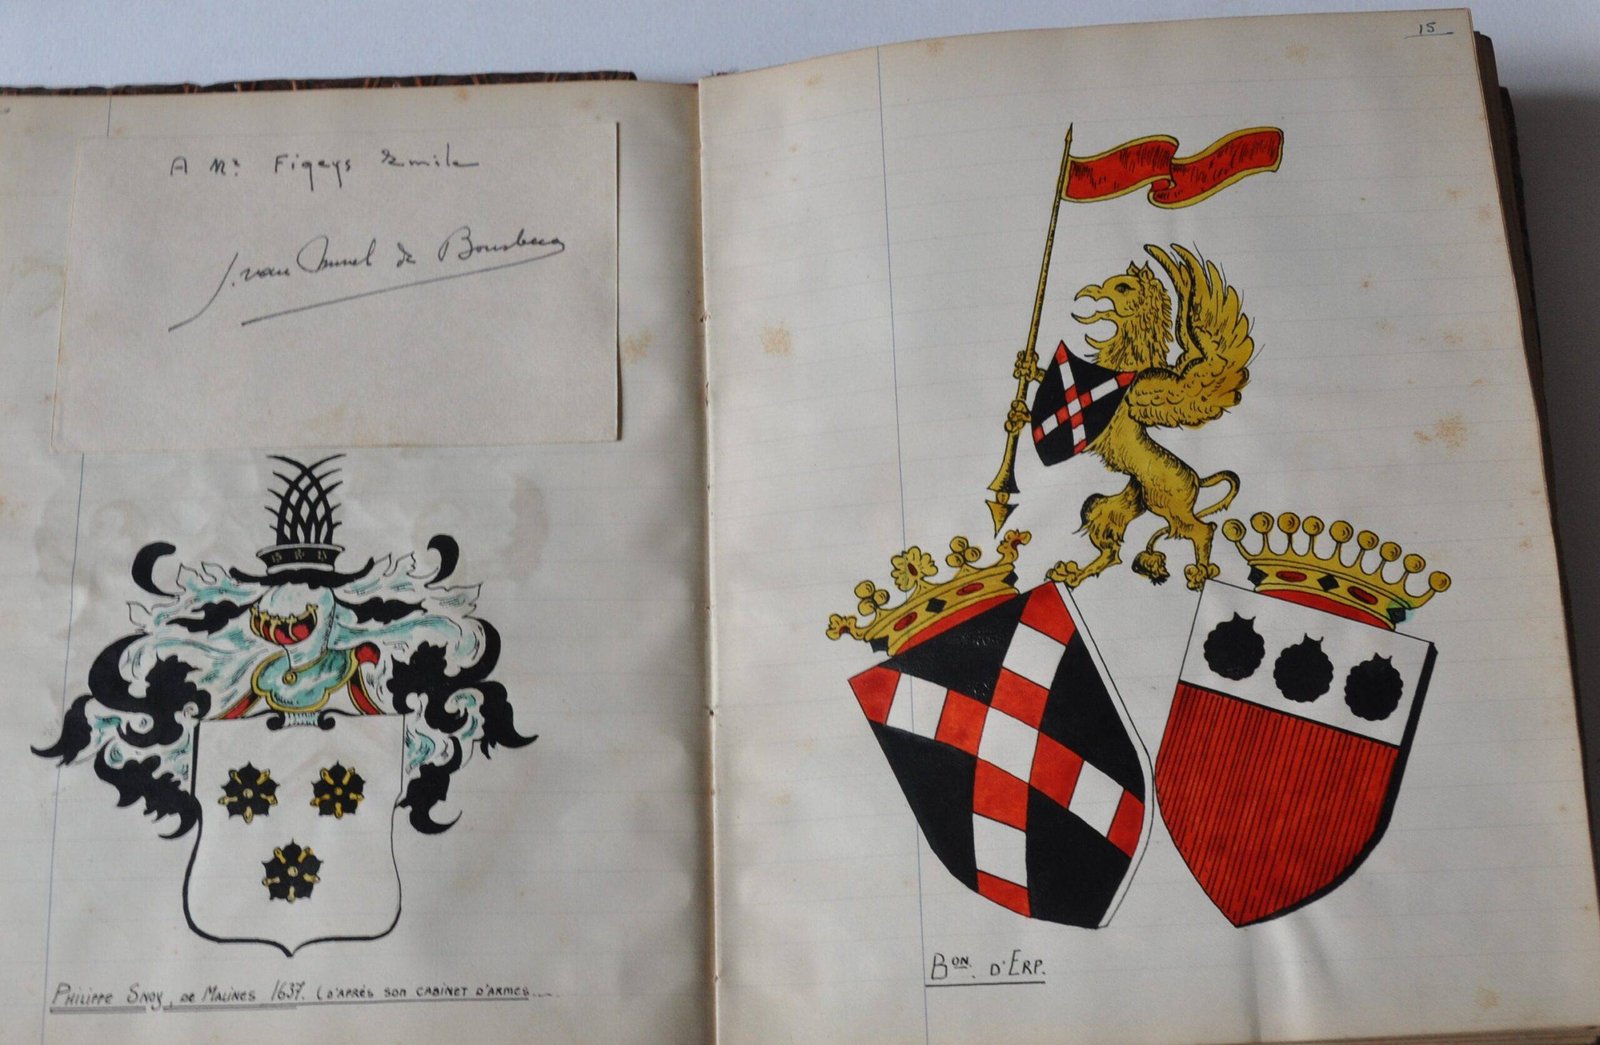 A Mr. Figeys Emile
J. van
de
PHILIPPE SNOY, DE MALINES 1637. (D'APRÈS SON CABINET D'ARMES...
15
BON. D'ERP.